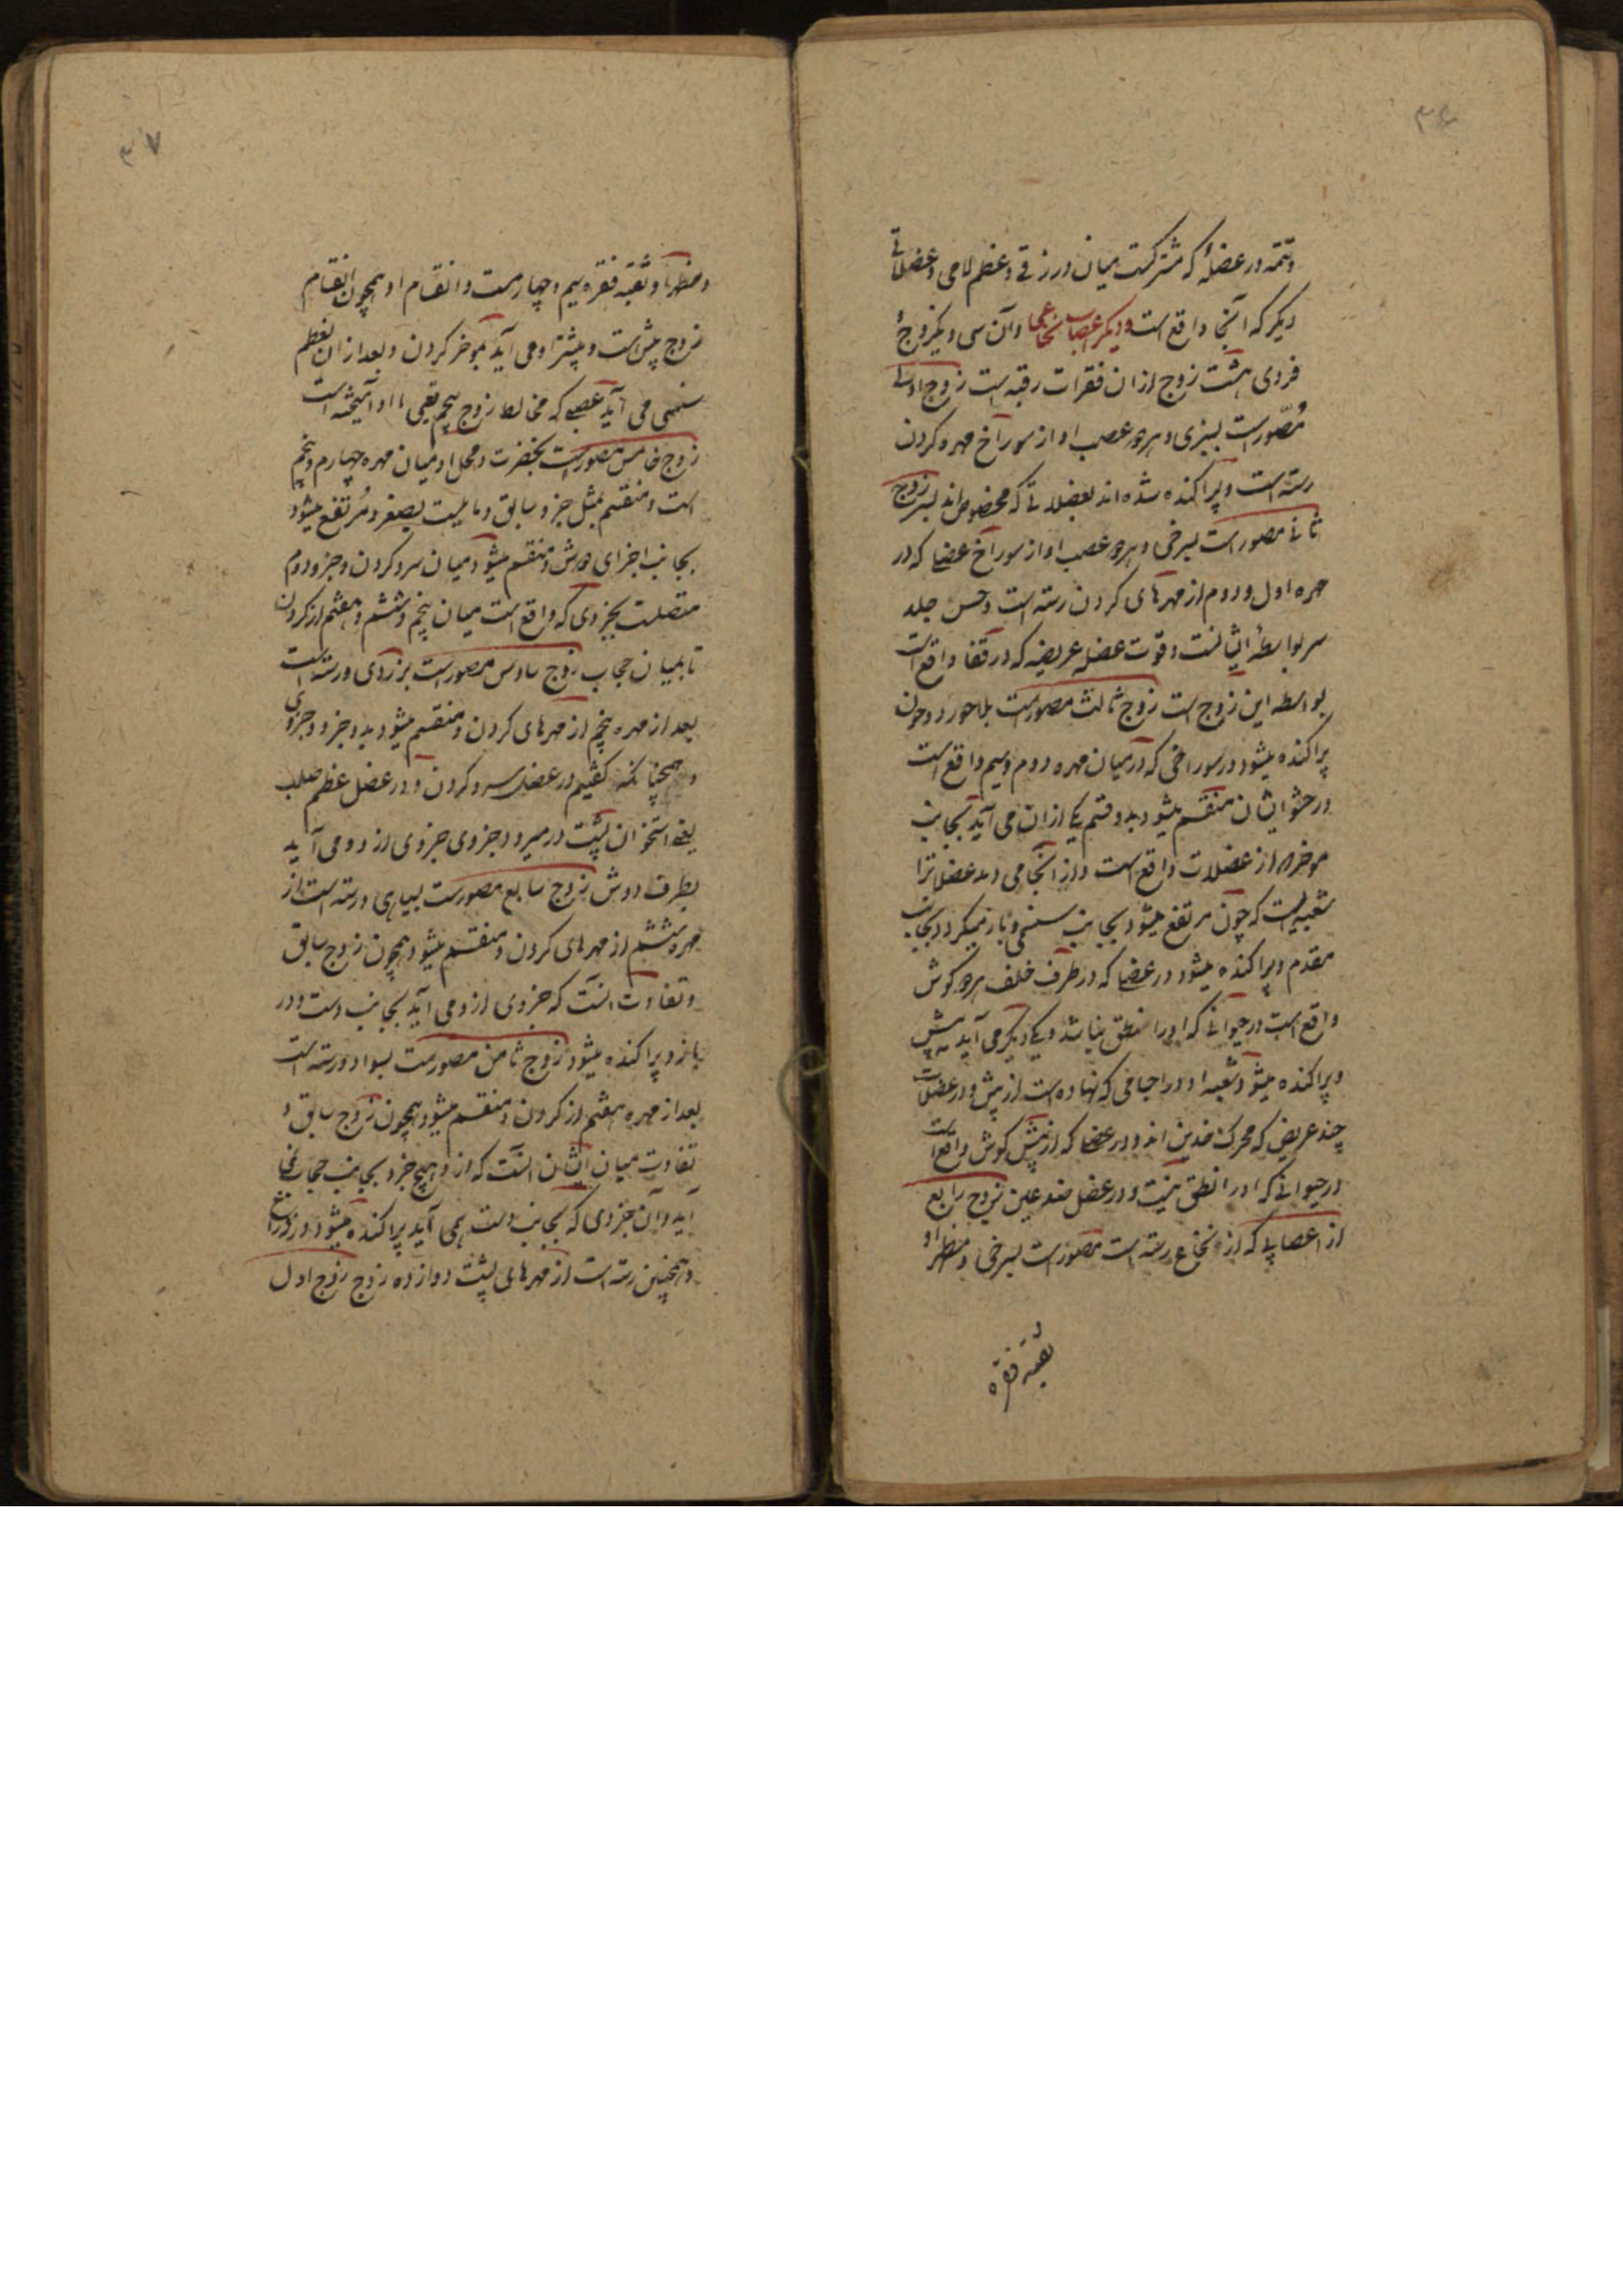 ۳۶
وتتمه در عضلهٔ که مشترکست میان درزقی و عظم لامی و عضلاتی
دیگر که آنجا واقع است ودیگر اعصاب نخاعی وآن سی ویکزوج
فردی هشت زوج ازان فقرات رقبه است زوج اول
مصّورست بسبزی وهردو عصب او از سوراخ مهره کردن
رسته است وپراکنده شده اند بعضلاتی که مخصوص اند بسر زوج
ثانی مصورست بسرخی وهردو عصب او از سوراخ عضا که در
مهره اول ودوم از مهرهای کردن رسته است وحس جلد
سر بواسطهٔ ایشانست وقوت عضله عریضه که در قفا واقع است
بواسطه این زوج است زوج ثالث مصورست بلاجورد وچون
پراکنده میشود در سوراخی که درمیان مهره دوم وسیم واقع است
در حشو ایشان منقسم میشود بدو قسم یکی ازان می آید بجانب
موخر از عضلات واقع است واز آنجا می دمد عضلاترا
شعبه ایست که چون مرتفع میشود بجانب سنسنی وباز میکردد بجانب
مقدم وپراکنده میشود در عضا که در طرف خلف هردو کوش
واقع است در حیوانی که اورا نطق نباشد ویکی دیگر می آید به پیش
وپراکنده میشود شعبه او در اجنافی که نهاده است از پیش ودر عضلات
چند عریض که محرک خدین اند ودر عضا که از پیش کوش واقع است
در حیوانی که اورا نطق نیست ودر عضل صدغین زوج رابع
از اعصابی که از نخاع رسته است مصورست بسرخی ومنظر او
ثقبه فقره
۳۷
ومنظر او ثقبه فقره سیم وچهارمست وانقسام او همچون انقسام
زوج پیش است وبیشتر او می آید بموخر کردن وبعد ازان بعظم
سنسنی می آید عصبی که مخالط زوج پنجم یعنی با او آمیخته است
زوج خامس مصورست بخضرت ومحل او میان مهره چهارم وپنجم
است ومنقسم بمثل جزو سابق وما لیست بصغر ومُرتفع میشود
بجانب اجزای دوش ومنقسم میشود میان سر وکردن وجزو دوم
متصلست بجزوی که واقع است میان پنجم وششم وهفتم از کردن
تا بمیان حجاب زوج سادس مصورست بزردی ورسته است
بعد از مهره پنجم از مهرهای کردن ومنقسم میشود بدو جزو وجزوی
وهمچنانکه کفتیم در عضل سر وکردن ودر عضل عظم صلب
یعنی استخوان پشت در میرود جزوی جزوی از دو می آید
بطرف دوش زوج سابع مصورست بسیاهی ورسته است از
مهره ششم از مهرهای کردن ومنقسم میشود همچون زوج سابق
وتفاوت انست که جزوی ازو می آید بجانب دست ودر
بازو پراکنده میشود زوج ثامن مصورست بسواد ورسته است
بعد از مهره هفتم از کردن ومنقسم میشود همچون زوج سابق و
تفاوت میان ایشان انست که ازو هیچ جزو بجانب حجاب نمی
آید وآن جزوی که بجانب دست همی آید پراکنده میشود در ذراع
وهمچنین رسته است از مهرهای پشت دوازده زوج زوج اول